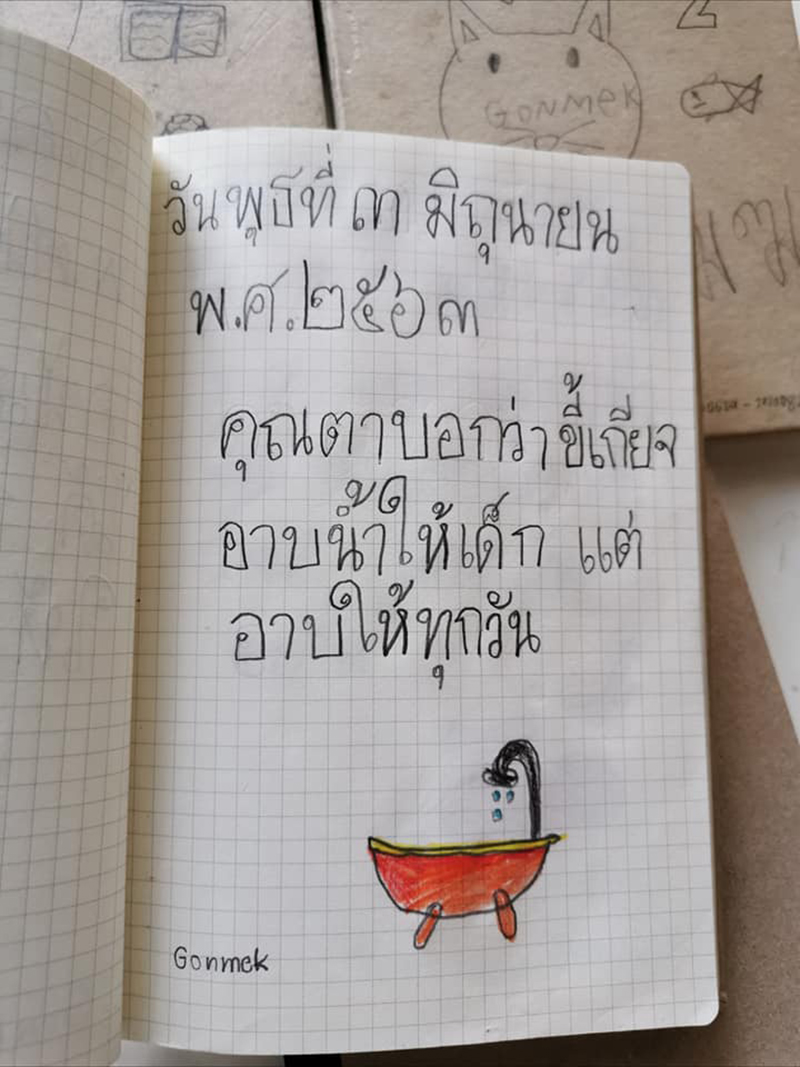 GONMEK
วันพุธที่ ๓ มิถุนายน
พ.ศ.๒๕๖๓
คุณตาบอกว่าขี้เกียจ
อาบน้ำให้เด็ก แต่
อาบให้ทุกวัน
Gonmek